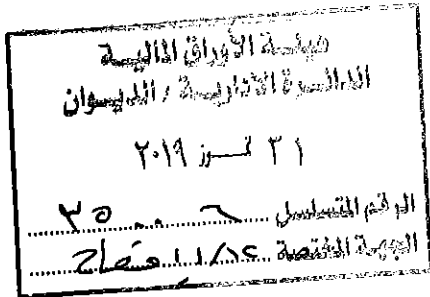 هيئة الأوراق المالية
الدائرة الادارية / الديوان
٣١ تموز ٢٠١٩
الرقم المتسلسل ٣٥٠٠٦
الجهة المختصة